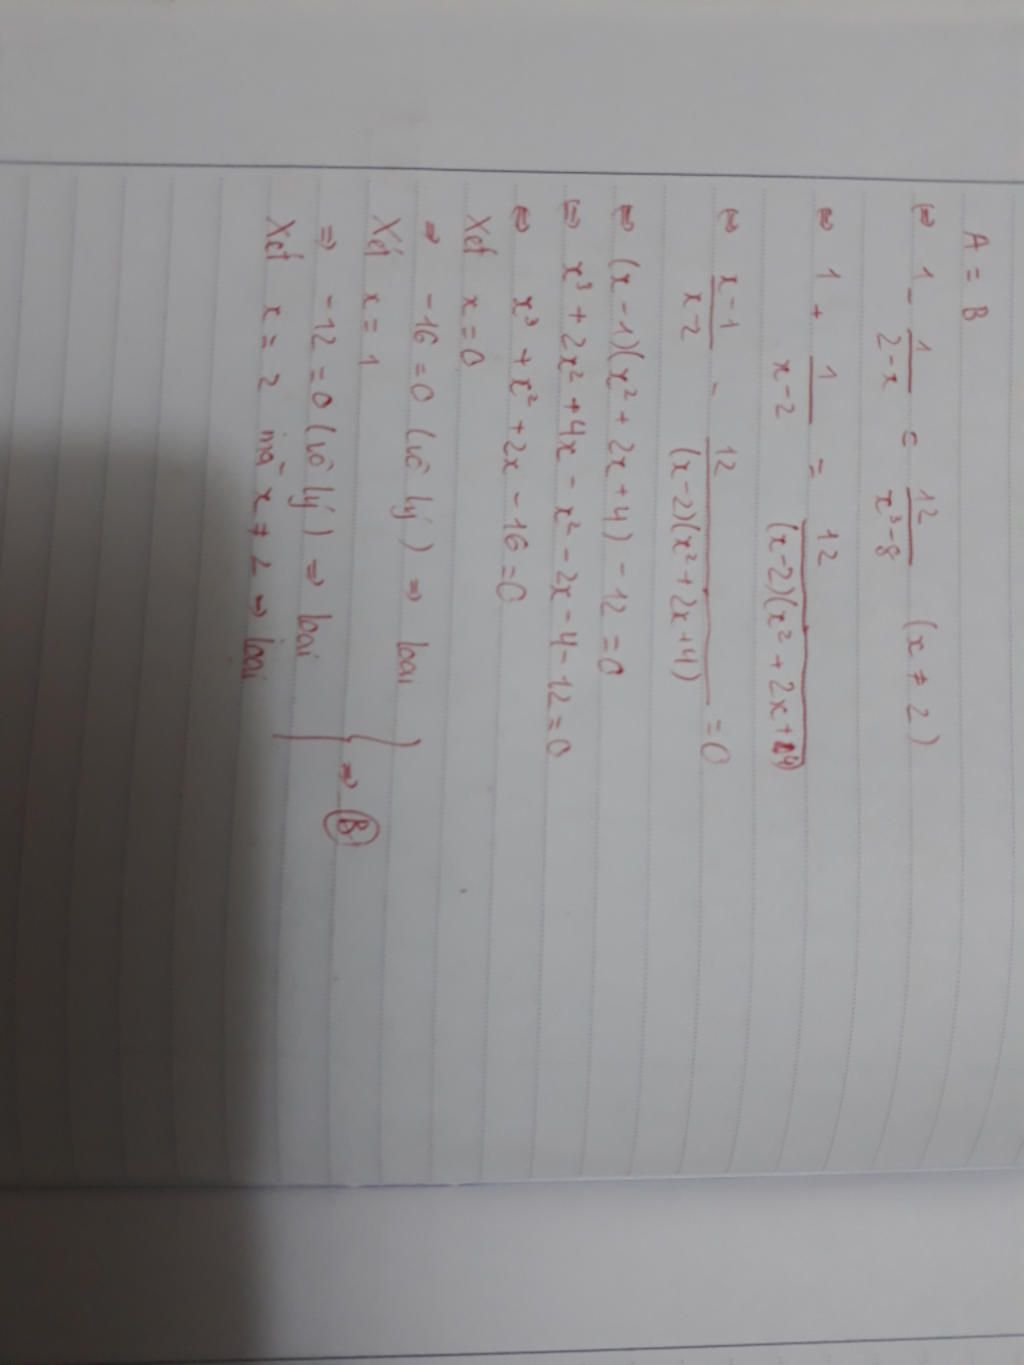 A = B
⇔ 1 - 1/(2-x) = 12/(x³-8) (x ≠ 2)
⇔ 1 + 1/(x-2) = 12/((x-2)(x²+2x+4))
⇔ (x-1)/(x-2) - 12/((x-2)(x²+2x+4)) = 0
⇔ (x-1)(x²+2x+4) - 12 = 0
⇔ x³ + 2x² + 4x - x² - 2x - 4 - 12 = 0
⇔ x³ + x² + 2x - 16 = 0
Xét x = 0
⇒ -16 = 0 (vô lý) ⇒ loại
Xét x = 1
⇒ -12 = 0 (vô lý) ⇒ loại
Xét x = 2 mà x ≠ 2 ⇒ loại
⇒ B